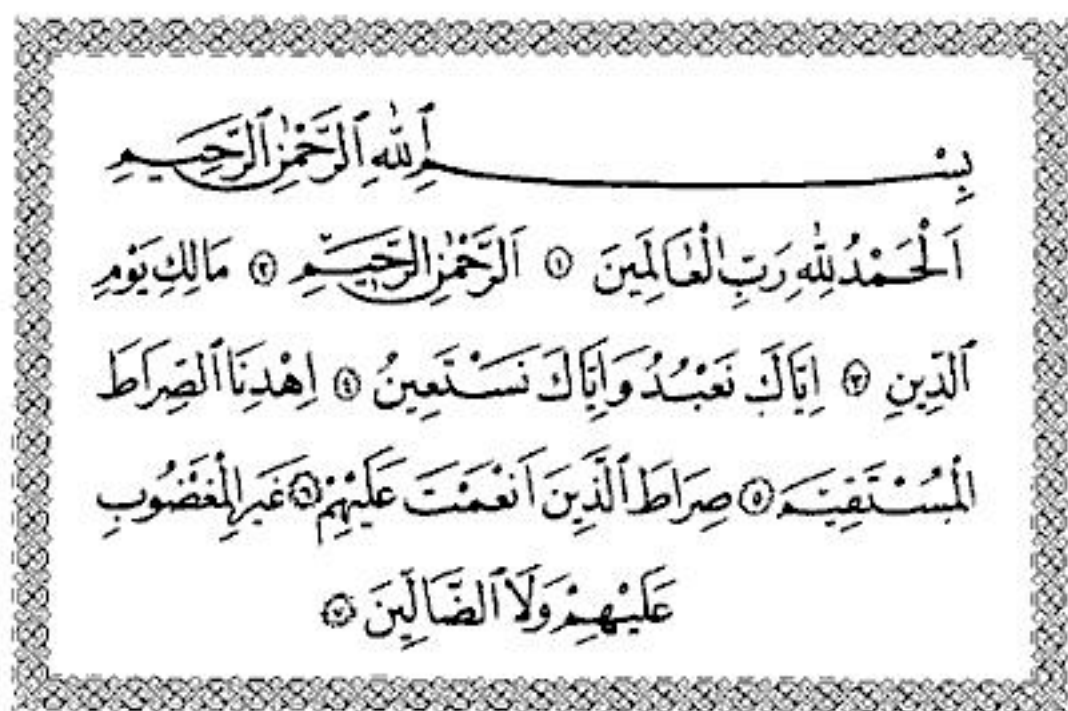 بِسْمِ ٱللّٰهِ ٱلرَّحْمٰنِ ٱلرَّحِيمِ
اَلْحَمْدُ لِلّٰهِ رَبِّ الْعَالَمِينَ ١ اَلرَّحْمٰنِ الرَّحِيمِ ٢ مَالِكِ يَوْمِ
ٱلدِّينِ ٣ اِيَّاكَ نَعْبُدُ وَاِيَّاكَ نَسْتَعِينُ ٤ اِهْدِنَا ٱلصِّرَاطَ
الْمُسْتَقِيمَ ٥ صِرَاطَ ٱلَّذِينَ اَنْعَمْتَ عَلَيْهِمْ ٦ غَيْرِ الْمَغْضُوبِ
عَلَيْهِمْ وَلَا ٱلضَّالِّينَ ٧